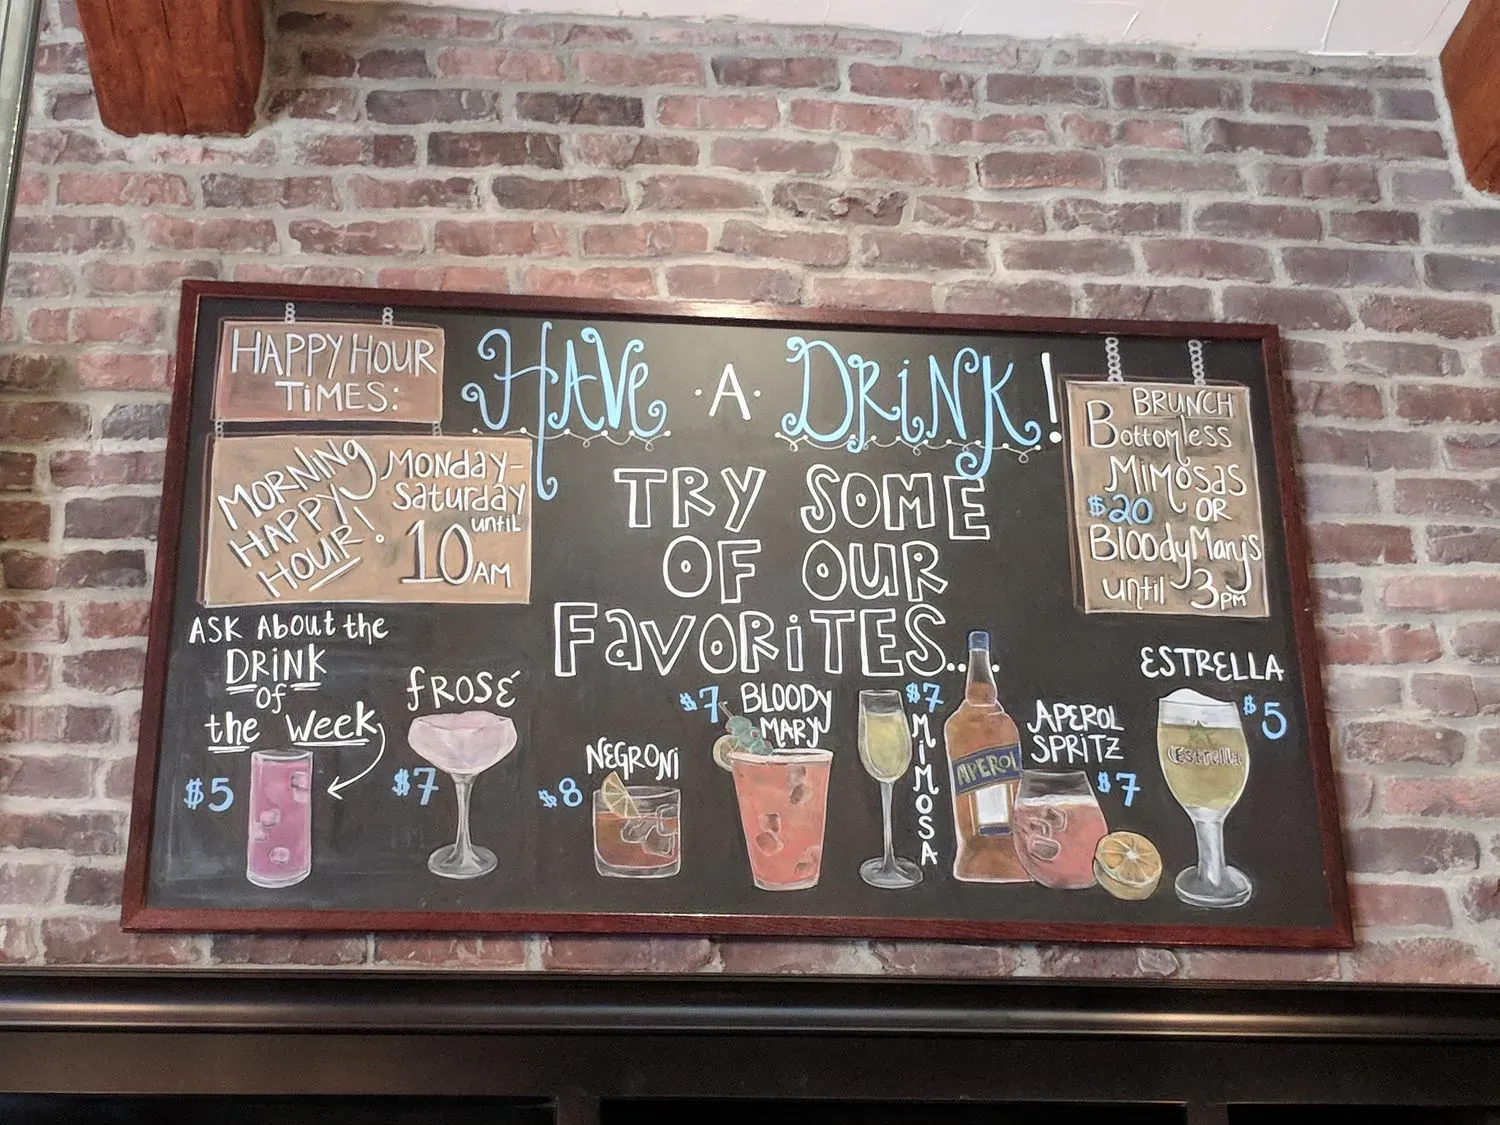 HAPPY HOUR
TiMES:
MORNING
HAPPY
HOUR!
MONday-
Saturday
until
10AM
HAVE · A · DRiNK!
TRY SOME
OF OUR
FAVORiTES...
BRUNCH
Bottomless
Mimosas
$20 OR
Bloody Marys
until 3PM
ASK About the
DRINK
of
the Week
$5
fROSÉ
$7
NEGRONi
$8
$7 BLOODY
MARY
$7
MiMOSA
APEROL
APEROL
SPRiTZ
$7
ESTRELLA
$5
Estrella